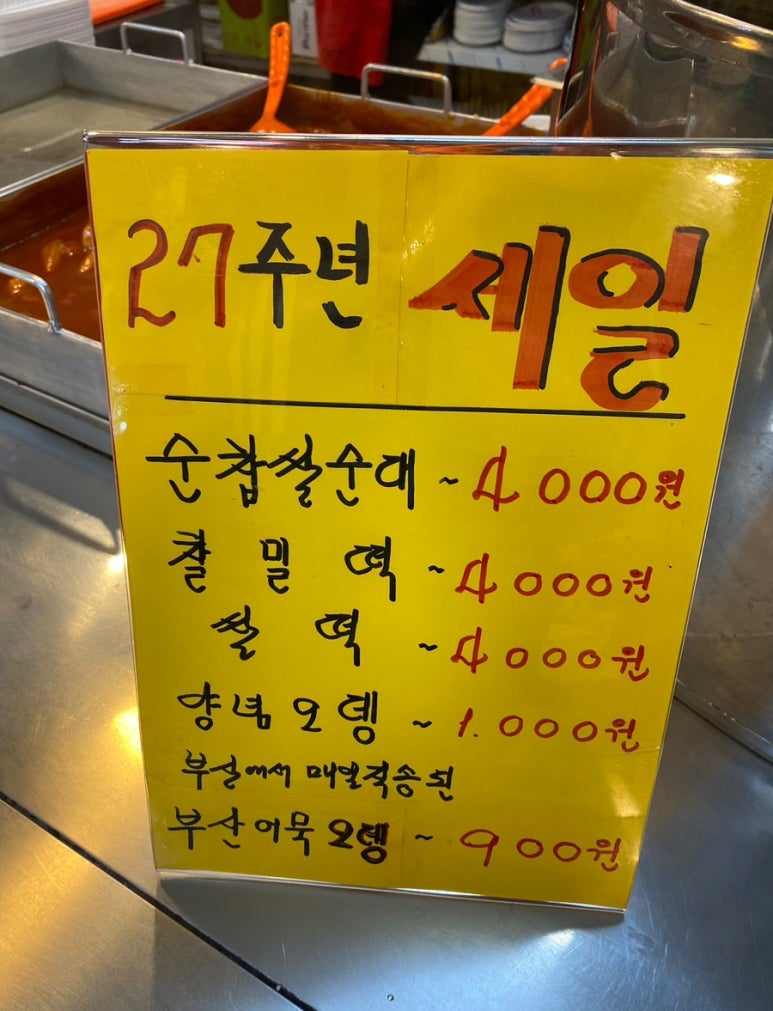 27주년 세일
순찹쌀순대 ~ 4000원
찰밀떡 ~ 4000원
쌀떡 ~ 4000원
양념오뎅 ~ 1.000원
부산에서 매일직송된
부산어묵오뎅 ~ 900원